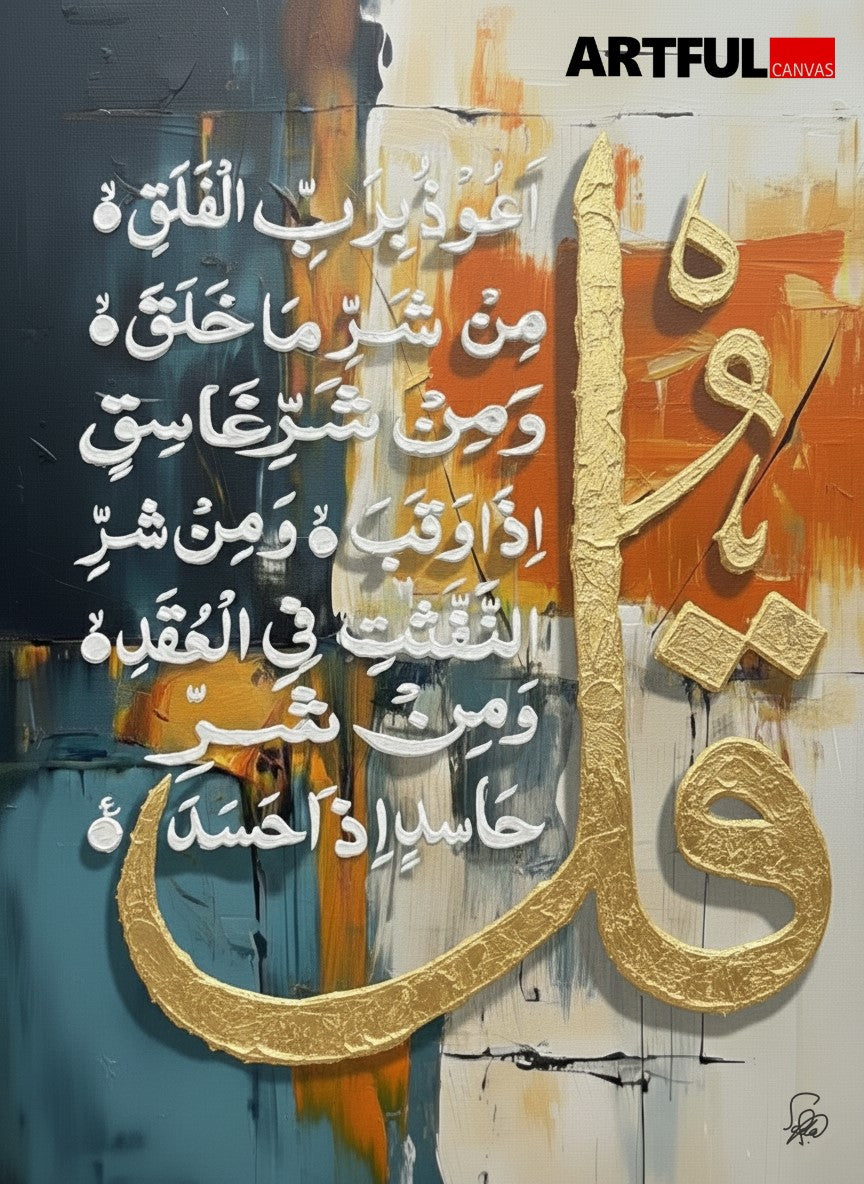 ARTFUL
CANVAS
قُلْ
اَعُوْذُ بِرَبِّ الْفَلَقِ ۙ○
مِنْ شَرِّ مَا خَلَقَ ۙ○
وَمِنْ شَرِّ غَاسِقٍ
اِذَا وَقَبَ ۙ○ وَمِنْ شَرِّ
النَّفّٰثٰتِ فِي الْعُقَدِ ۙ○
وَمِنْ شَرِّ
حَاسِدٍ اِذَا حَسَدَ ○ع